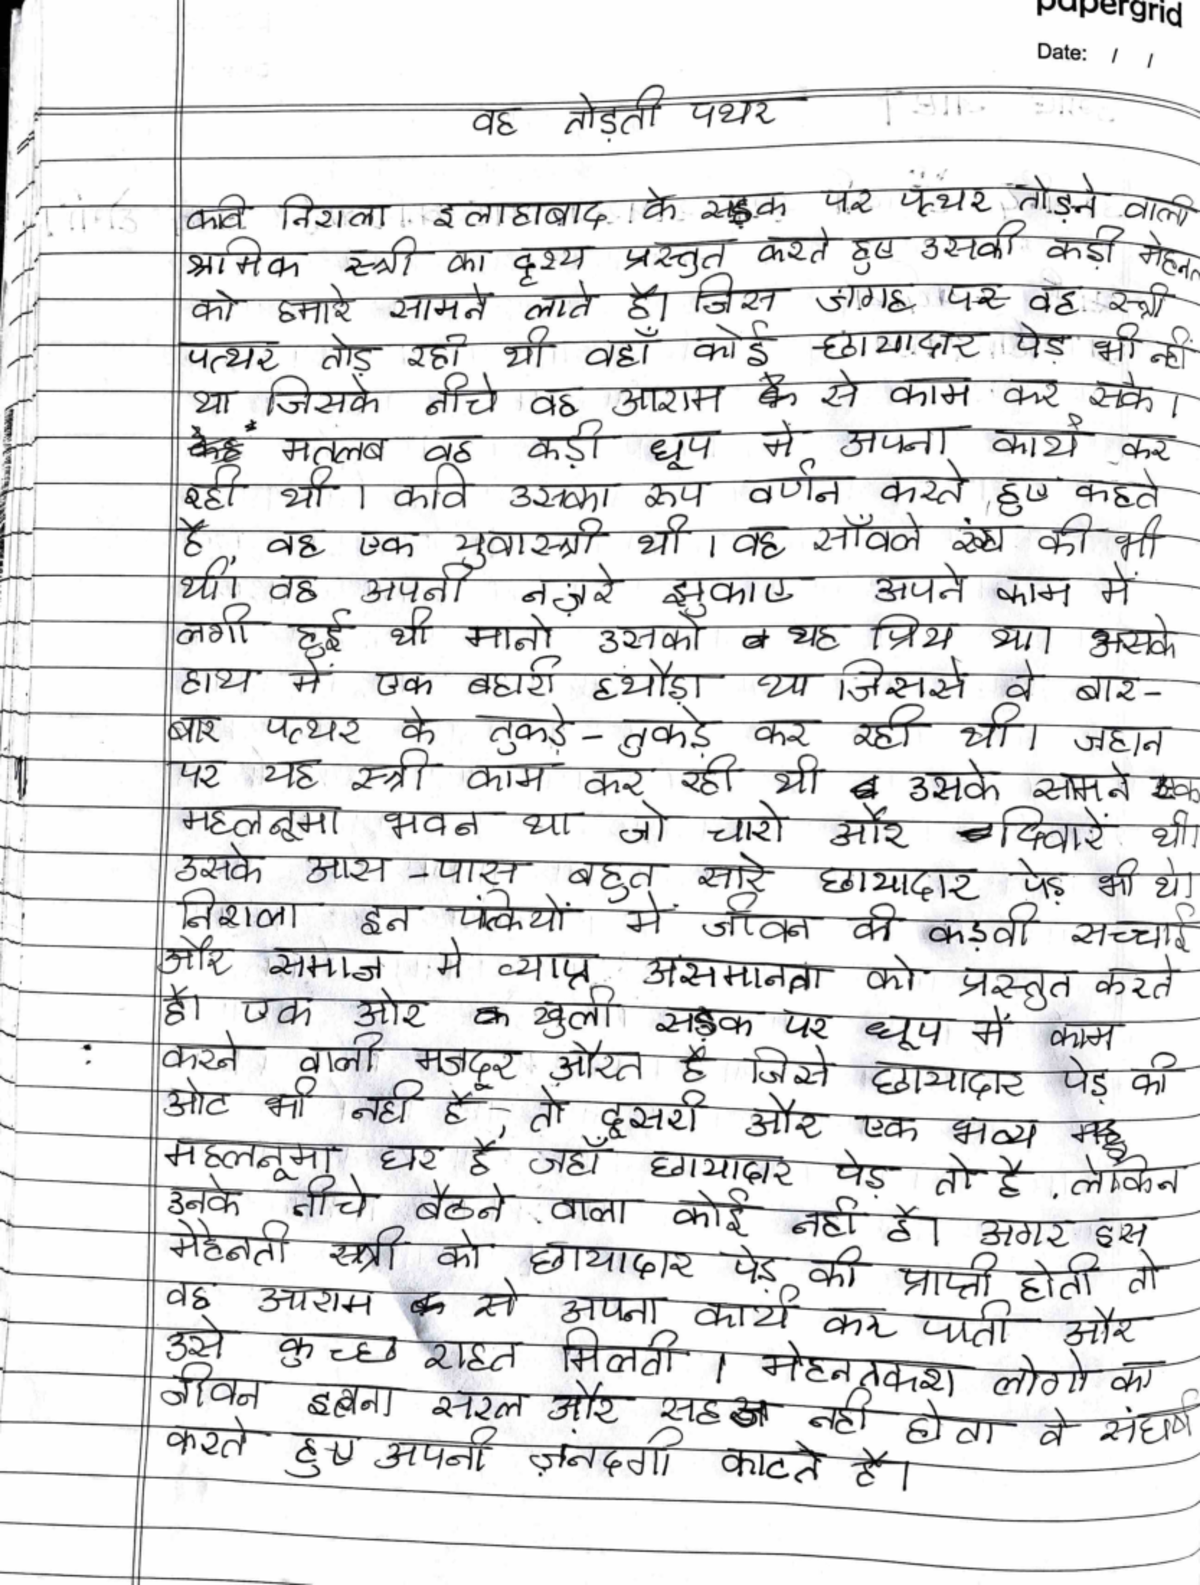 papergrid
Date: / /
वह तोड़ती पथर
कवि निराला इलाहाबाद के सड़क पर पत्थर तोड़ने वाली
श्रमिक स्त्री का दृश्य प्रस्तुत करते हुए उसकी कड़ी मेहनत
को हमारे सामने लाते है। जिस जगह पर वह स्त्री
पत्थर तोड़ रही थी वहाँ कोई छायादार पेड़ भी नही
था जिसके नीचे वह आराम से काम कर सके।
मतलब वह कड़ी धूप मे अपना कार्य कर
रही थी। कवि उसका रूप वर्णन करते हुए कहते
है, वह एक युवास्त्री थी। वह साँवले रंग की भी
थी। वह अपनी नज़रे झुकाए अपने काम में
लगी हुई थी मानो उसको यह प्रिय था। उसके
हाथ में एक बहारी हथौड़ा था जिससे वे बार-
बार पत्थर के तुकड़े - तुकड़े कर रही थी। जहान
पर यह स्त्री काम कर रही थी उसके सामने एक
महलनूमा भवन था जो चारो और दिवारें थी।
उसके आस - पास बहुत सारे छायादार पेड़ भी थे।
निराला इन पंक्तियों में जीवन की कड़वी सच्चाई
और समाज मे व्याप्त असमानता को प्रस्तुत करते
है। एक ओर खुली सड़क पर धूप में काम
करने वाली मजदूर औरत है जिसे छायादार पेड़ की
ओट भी नही है, तो दूसरी और एक भव्य
महलनूमा घर है जहाँ छायादार पेड़ तो है. लेकिन
उनके नीचे बैठने वाला कोई नही है। अगर इस
मेहेनती स्त्री को छायादार पेड़ की प्राप्ती होती तो
वह आराम से अपना कार्य कर पाती और
उसे कुच्छ राहत मिलती। मेहनतकश लोगो का
जीवन इतना सरल और सहज नही होता वे संघर्ष
करते हुए अपनी ज़नदगी काटते है।